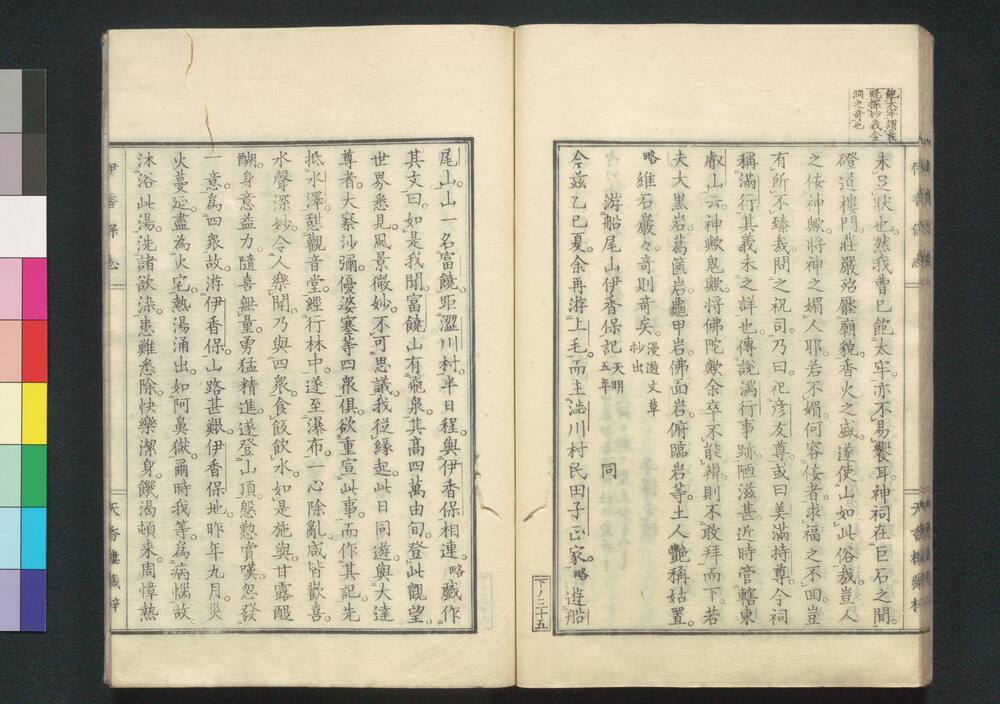 鮑太牢謂飫
既探妙義金
洞之奇也
未足状也。然我曹已飽太牢。亦不易饗耳。神祠在巨石之間。
磴道樓門。莊嚴殆壓廟貌。香火之盛。遂使山如此俗哉。豈人
之侫神歟。將神之媚人耶。若不媚。何容侫者。求福之不回。豈
有所不臻哉。問之祝司。乃曰。祀彦友尊。或曰美滿持尊。今祠
稱滿行。其義未之詳也。傳説滿行事跡。陋滋甚。近時管轄東
叡山。云神歟。鬼歟。將佛陀歟。余卒不能辨。則不敢拜而下。若
夫大黒岩。葛篋岩。龜甲岩。佛面岩。俯臨岩等。土人艷稱。姑置。
略 維石巖々。奇則奇矣。漫遊文草
抄出
游船尾山伊香保記 天明五年 同
今茲乙巳夏。余再游上毛。而主澁川村民田子正家。略 遊船
尾山。山一名富饒。距澀川村。半日程。與伊香保相連。略 戯作
其文曰。如是我聞。富饒山有飛泉。其高四萬由旬。登此觀望。
世界悉見。風景微妙。不可思議。我從縁起。此日同遊。與大達
尊者。大察沙彌。優婆塞等四衆俱。欲重宣此事。而作其記。先
抵水澤。憩觀音堂。經行林中。遂至瀑布。一心除亂。咸皆歡喜。
水聲深妙。令人樂聞。乃與四衆。食飯飲水。如是施與。甘露醍
醐。身意益力。隨喜無量。勇猛精進。遂登山頂。慇懃賞嘆。忽發
一意。爲四衆故。游伊香保。山路甚艱。伊香保地。昨年九月。災
火蔓延。盡為火宅。熱湯涌出。如阿鼻獄。爾時我等。為病惱故。
沐浴此湯。洗諸欲染。患難悉除。快樂潔身。饑渇頓来。周慞熱
伊香保志
天香樓叢梓
下ノ三十五